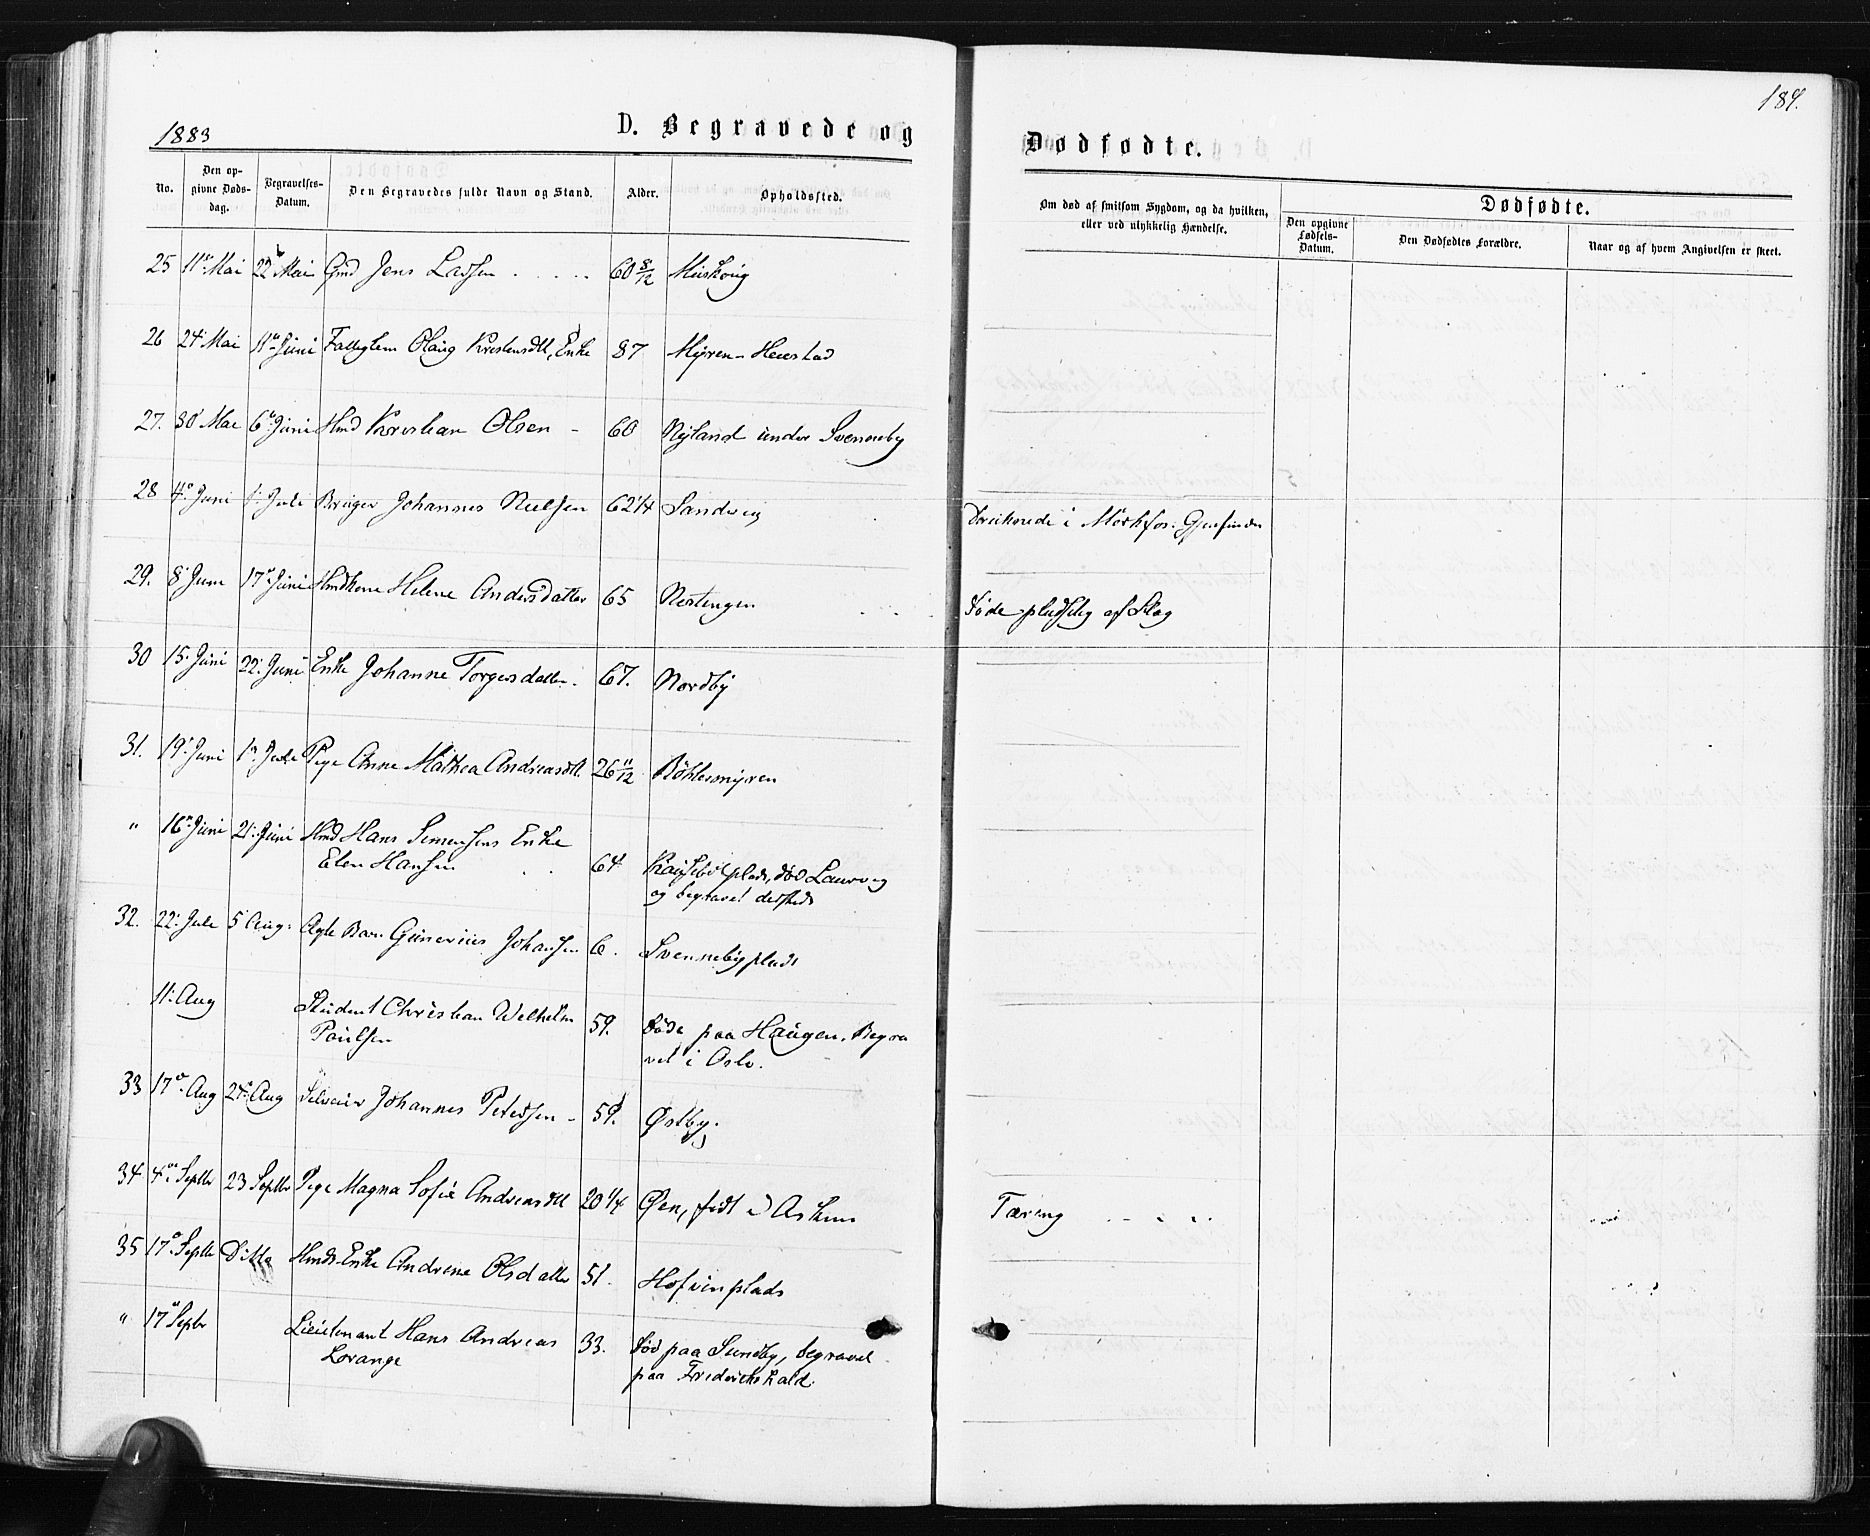 1883
D. Begravede og
No.
Den op-
givne Døds-
dag.
Begravelses-
Datum.
Den Begravedes fulde Navn og Stand.
Alder.
Opholdssted.
25 11te Mai 22de Mai Gmd Jens Larsen 60 8/12
26 24 Mai 11te Juni Olaug Kristensdtt, Enke 87 Myren - Heiestad
27. 30 Mai 6te Juni Hmd Kristian Olsen - 60 Nyland under Svenneby
28 4de Juni 1. Juli Bruger Johannes Nielsen 62 1/4 Sandvig
29. 8 Juni 17de Juni Hmdkone Helene Andersdatter 65 Nestengen
30 15. Juni 22. Juni Enke Johanne Torgersdatter. 67. Nordby
31. 19. Juni 1ste Juli Pige Anne Mathea Andreasdtt. 26 11/12 Böhlermyren
" 16de Juni 21. Juni Hmd Hans Simensens Enke
Elen Hansen 64 plads, død Laurvig
og begravet dersteds
32. 22. Juli 5 Aug. Ægte Barn Gunerius Johansen 6. Svennebyplads
11. Aug Student Christian Wilhelm
Poulsen 59. Døde paa Haugen. Begra
vet i Oslo.
33 17de Aug 24de Aug Johannes Pedersen - 59. Østby.
34 4de Septbr 23 Septbr Pige Magna Sofie Andreasdtt 20 1/4 Øen, født i Askim
35 17de Septbr Ditto Hmds Enke Andrine Olsdatter 51. Hofvinplads
" 17de Septbr Lieutenant Hans Andreas
Lorange 33. Død paa Sundby, begravet
paa Fredrikshald.
184.
Dødfødte.
Om død af smitsom Sygdom, og da hvilken,
eller ved ulykkelig Hændelse.
Dødfødte.
Den opgivne
Fødsels-
Datum.
Den Dødfødtes Forældre.
Naar og af hvem Angivelsen er skeet.
i Mörkfos.
Døde pludselig af Slag
Tæring